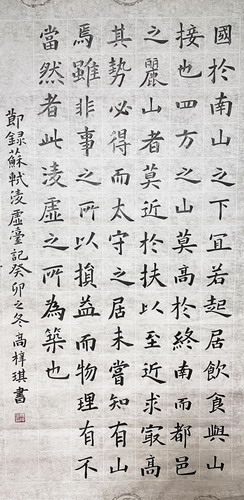 國於南山之下冝若起居飲食與山
接也四方之山莫高於終南而都邑
之麗山者莫近於扶以至近求冣高
其勢必得而太守之居未嘗知有山
焉雖非事之所以損益而物理有不
當然者此淩虛之所為築也
節録蘇軾淩虛臺記癸卯之冬高梓琪書